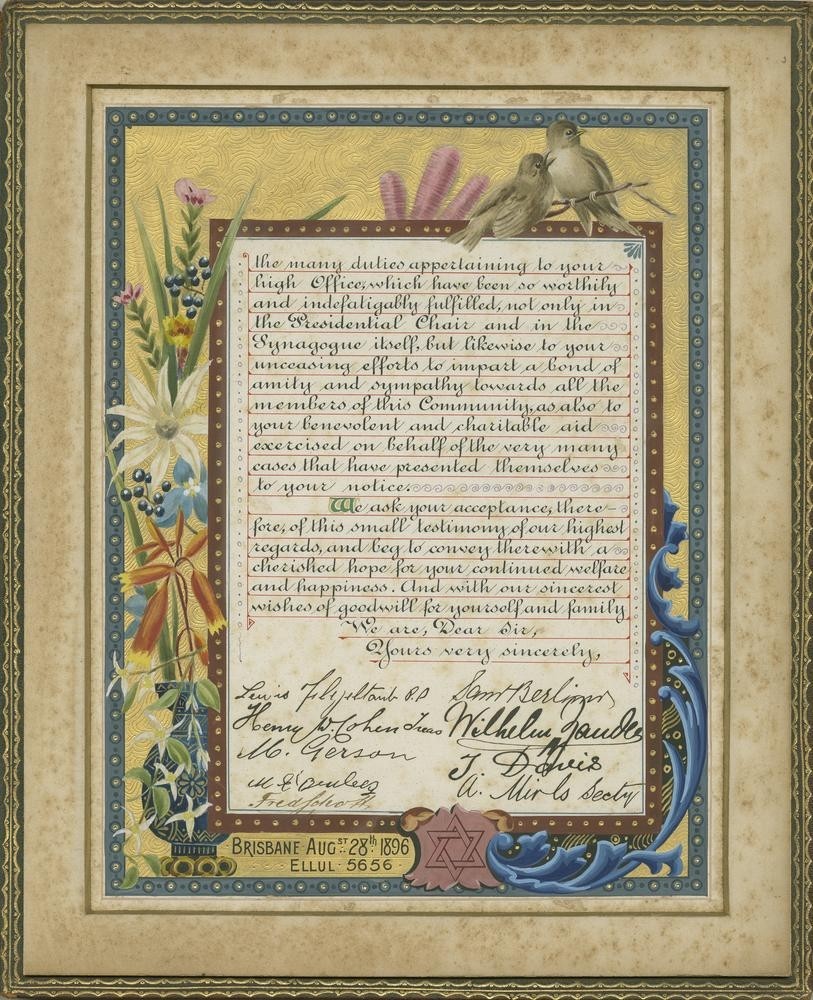 the many duties appertaining to your
high Office, which have been so worthily
and indefatigably fulfilled, not only in
the Presidential Chair and in the
Synagogue itself, but likewise to your
unceasing efforts to impart a bond of
amity and sympathy towards all the
members of this Community, as also to
your benevolent and charitable aid
exercised on behalf of the very many
cases that have presented themselves
to your notice.
We ask your acceptance, there-
fore, of this small testimony of our highest
regards, and beg to convey therewith a
cherished hope for your continued welfare
and happiness. And with our sincerest
wishes of goodwill for yourself and family
We are, Dear Sir,
Yours very sincerely,
Lewis P.P
Sam Berliner
Henry W. Cohen Treas
Wilhelm
M. Gerson
J Davis
M
A. Mirls Secty
BRISBANE AUGST 28th 1896
ELLUL 5656